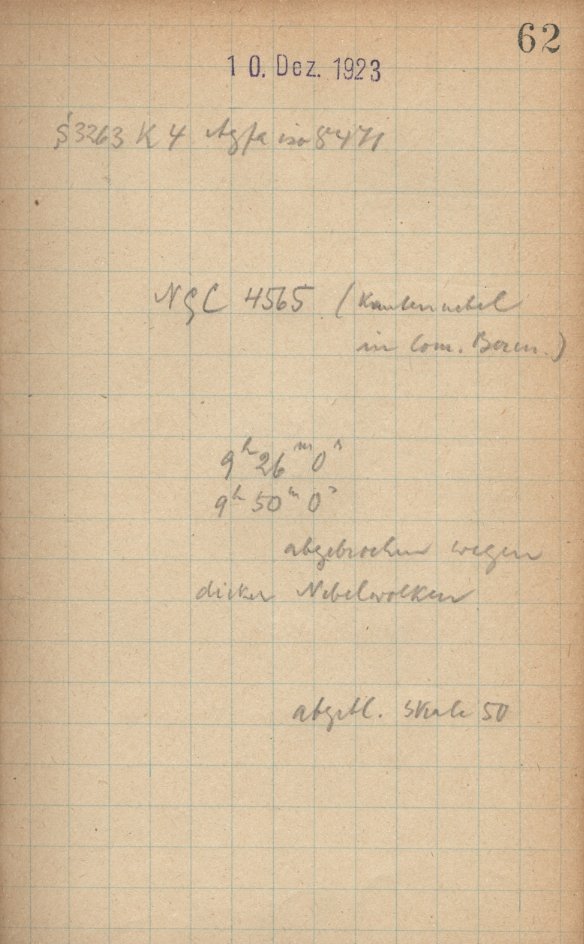 62
10. Dez. 1923
S3263 K 4 Agfa iso 8471
NGC 4565 (Kantennebel
in Com. Beren.)
9h 26m 0s
9h 50m 0s
abgebrochen wegen
dicker Nebelwolken
abgebl. Skale 50